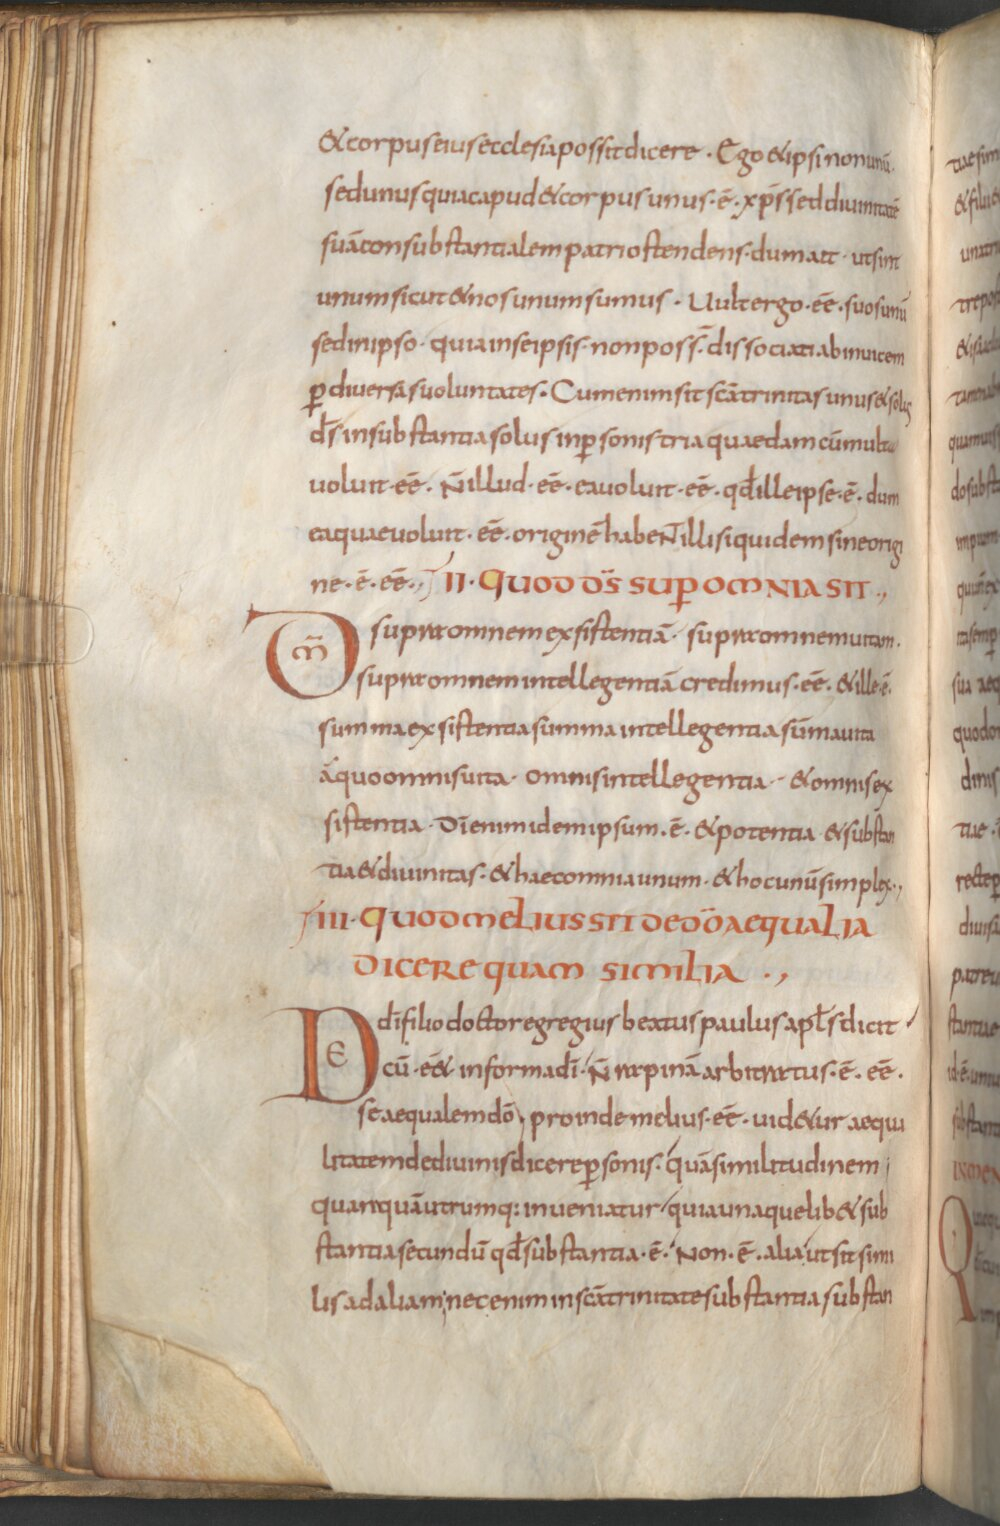 &corpus eius ecclesia possit dicere · Ego & ipsi non unū ·
sed unus quia capud & corpus unus · ē · xp̄s sed diuinitatē
suā consubstantialem patri ostendens · dum ait · ut sint
unum sicut & nos unum sumus · Uult ergo · eē · suos unū
sed in ipso · quia in se ipsis · non poss̄ · dissociati ab inuicem
ꝑ diuersa suoluntates · Cum enim sit scā trinitas unus & solus
d̄s in substantia solus in ꝑsonis tria quaedam cū multa
uoluit · eē · N̄ illud · eē · ea uoluit · eē · qđ ille ipse · ē · dum
ea quae uoluit · eē · originē habeNT illi siquidem sine origi
ne · ē · eē · II · QUOD DS̄ SUꝑ OMNIA SIT ·,
Dm̄ supra omnem exsistentiā · supra omnem uitam ·
supra omnem intellegentiā credimus · eē · & ille · ē ·
summa exsistentia summa intellegentia sūma uita
ā quo omnis uita · omnis intellegentia · & omnis ex
sistentia · Dī enim idem ipsum · ē · & potentia & substan
tia & diuinitas · & haec omnia unum · & hoc unū simplex ·,
III · QUOD MELIUS SIT DE DŌ AEQUALIA
DICERE QUAM SIMILIA ·,
DE dī filio doctor egregius beatus paulus apl̄s dicit
cū · eē& in forma dī · N̄ rapinā arbitratus · ē · eē ·
se aequalem dō, proinde melius · eē · uid&ur aequa
litatem de diuinis dicere ꝑsonis · quā similitudinem
quanquā utrumq: inueniatur quia unaquelib& sub
stantia secundū qđ substantia · ē · Non · ē · alia ut sit simi
lis ad aliam; nec enim in scā trinitate substantia substan